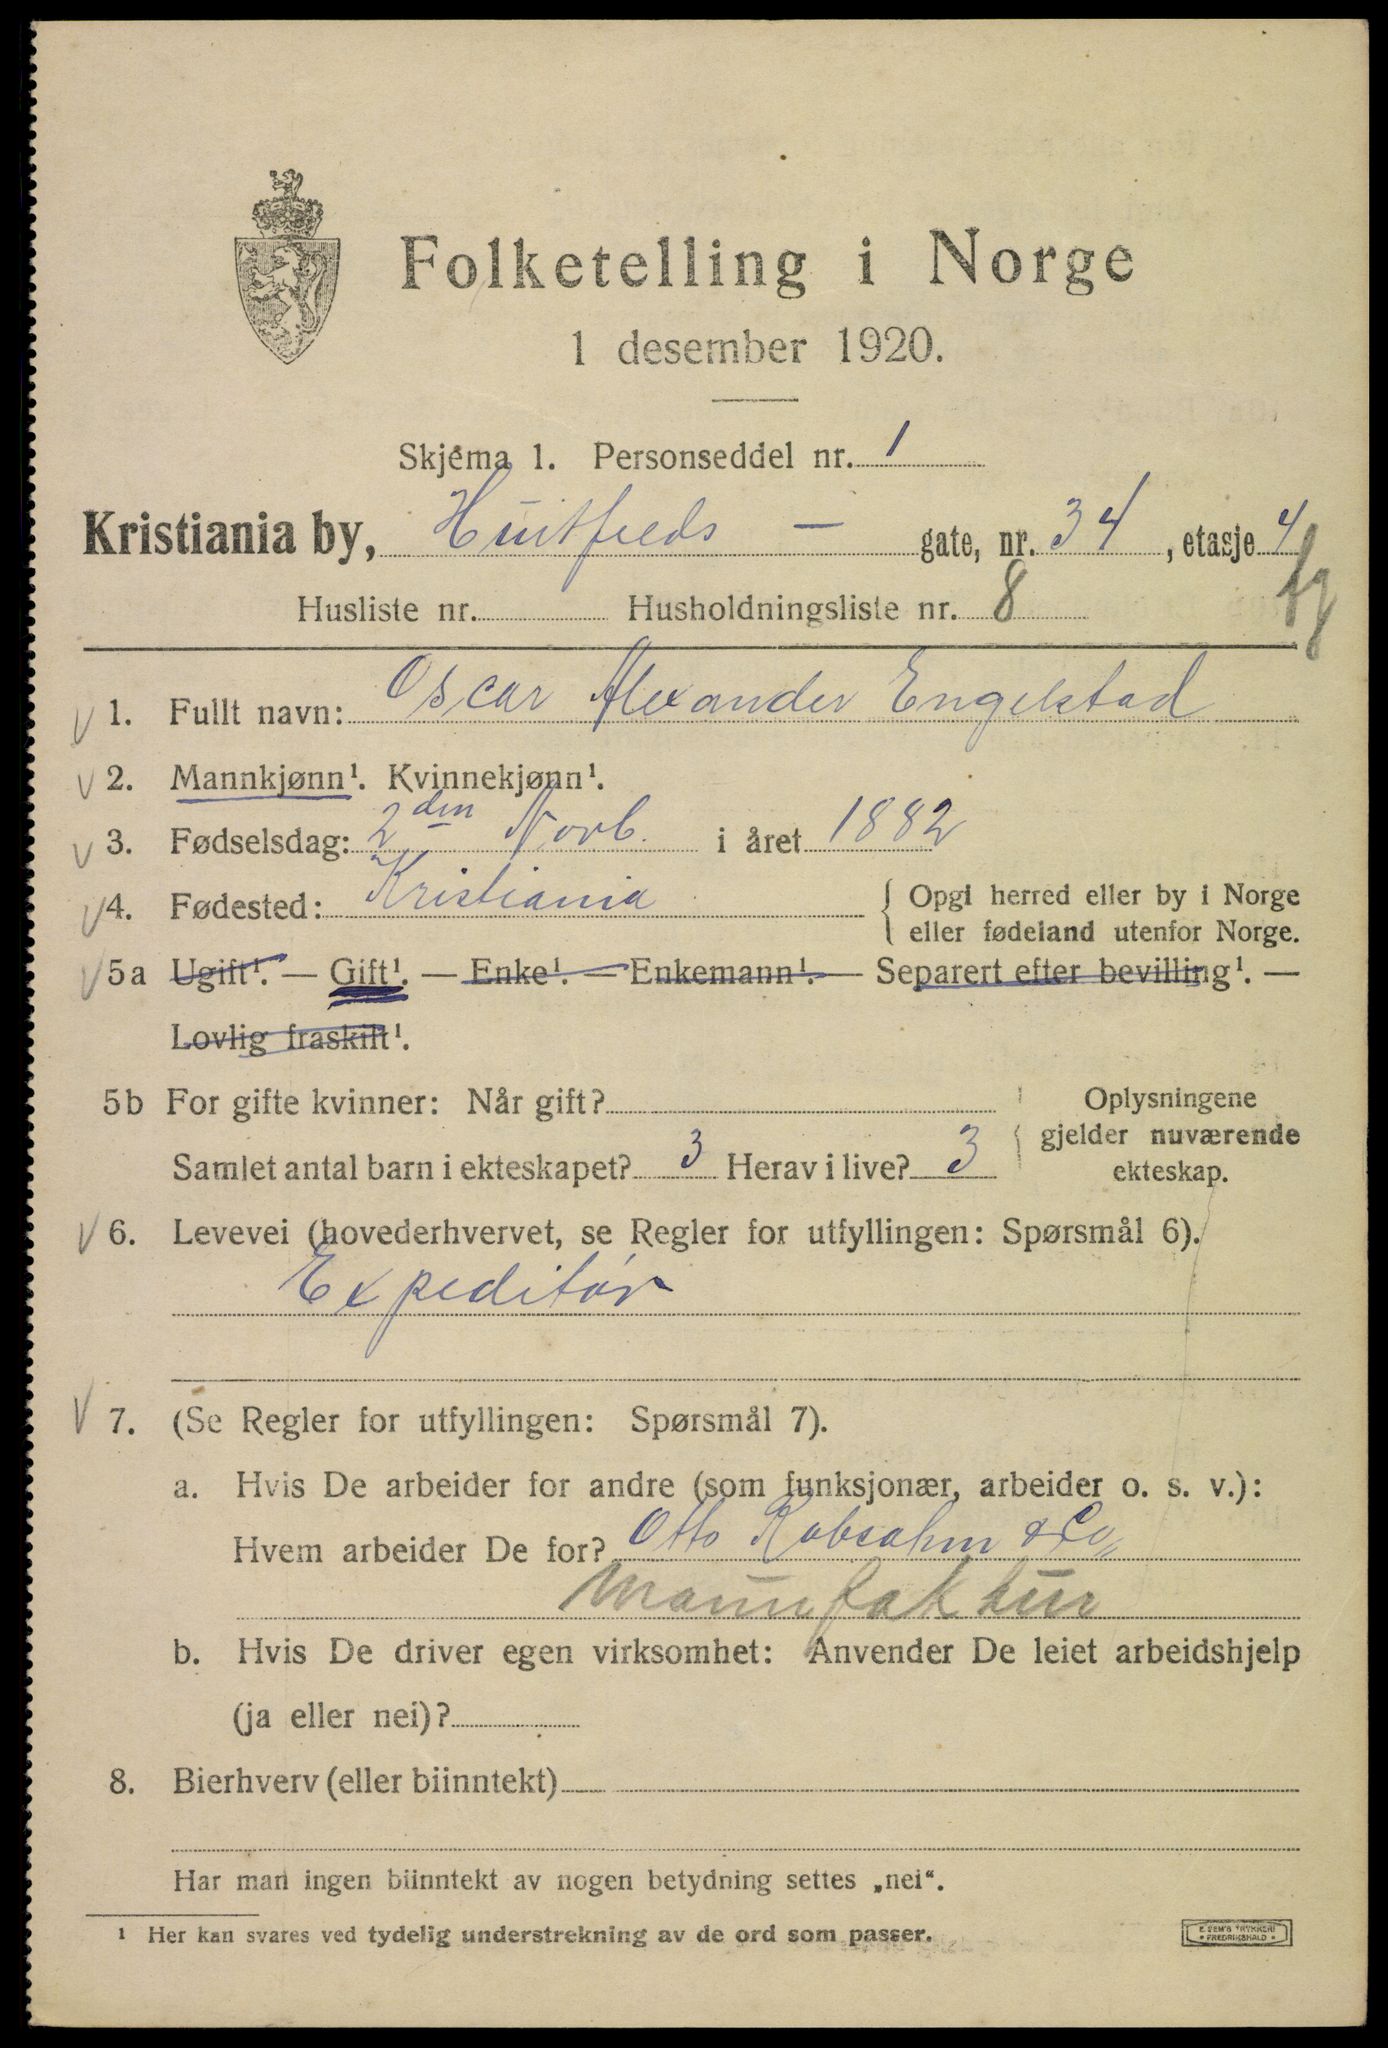 Folketelling i Norge
1 desember 1920.
Skjema 1. Personseddel nr. 1
Kristiania by, Huitfelds – gate, nr. 34, etasje 4
Husliste nr. Husholdningsliste nr. 8
1. Fullt navn: Oscar Alexander Engelstad
2. Mannkjønn¹. Kvinnekjønn¹.
3. Fødselsdag: 2den Novb. i året 1882
4. Fødested: Kristiania { Opgi herred eller by i Norge
eller fødeland utenfor Norge.
5a Ugift¹. — Gift¹. — Enke¹. — Enkemann¹. — Separert efter bevilling¹. —
Lovlig fraskilt¹.
5b For gifte kvinner: Når gift? Oplysningene
gjelder nuværende
Samlet antal barn i ekteskapet? 3 Herav i live? 3 ekteskap.
6. Levevei (hovederhvervet, se Regler for utfyllingen: Spørsmål 6).
Expeditør
7. (Se Regler for utfyllingen: Spørsmål 7).
a. Hvis De arbeider for andre (som funksjonær, arbeider o. s. v.):
Hvem arbeider De for? Otto Robsahm & Co
Manufaktur
b. Hvis De driver egen virksomhet: Anvender De leiet arbeidshjelp
(ja eller nei)?
8. Bierhverv (eller biinntekt)
Har man ingen biinntekt av nogen betydning settes „nei“.
¹ Her kan svares ved tydelig understrekning av de ord som passer.
E SEM'S TRYKKERI
• FREDRIKSHALD •